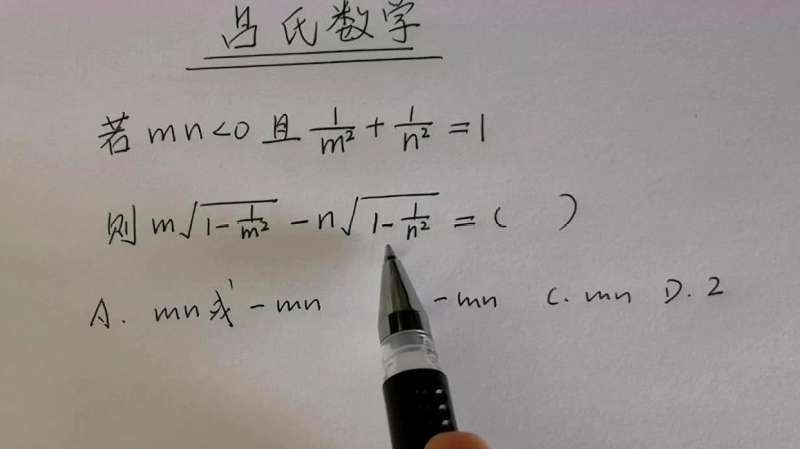 吕氏数学
若 mn<0 且 1/m² + 1/n² = 1
则 m√(1-1/m²) - n√(1-1/n²) = ( )
A. mn或-mn -mn C. mn D. 2